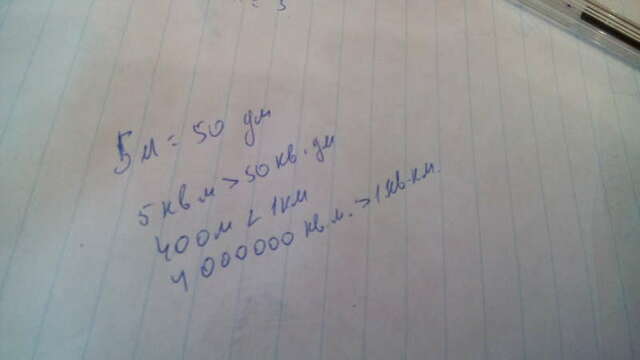 5м = 50 дм
5 кв м > 50 кв. дм
400м < 1 км
4 000000 кв. м. > 1 кв. км.